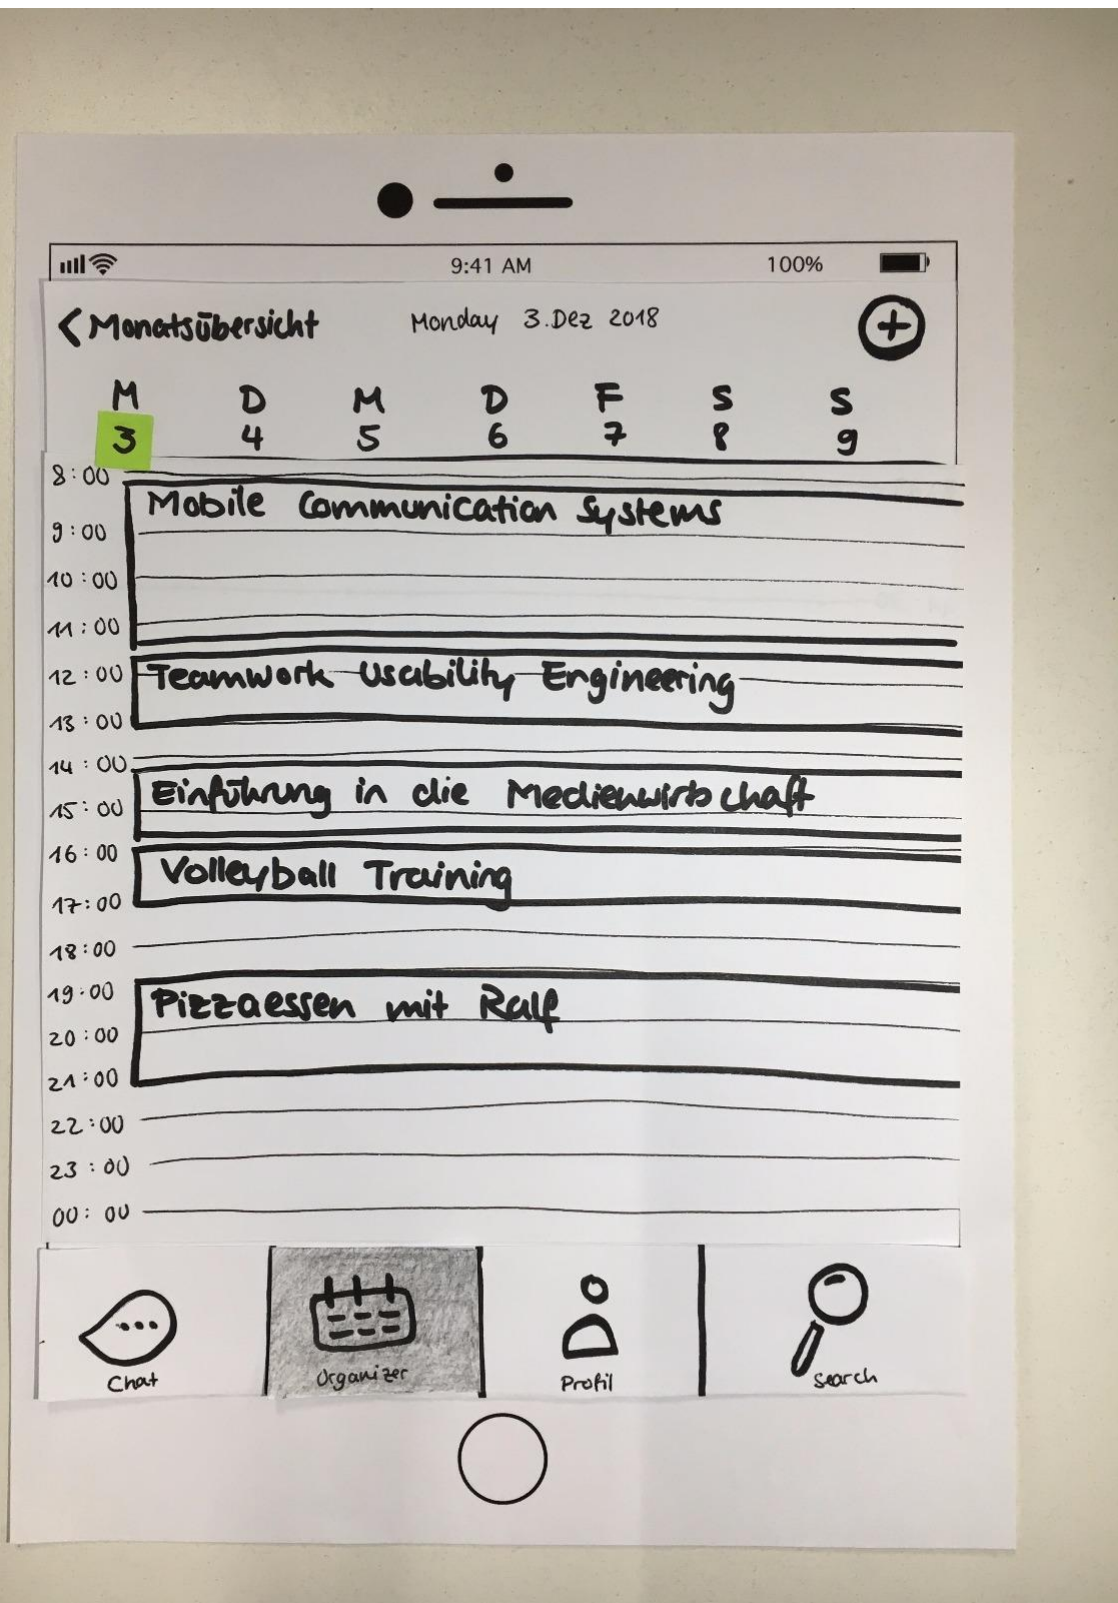 9:41 AM 100%
< Monatsübersicht Monday 3.Dez 2018 +
M D M D F S S
3 4 5 6 7 8 9
8:00
Mobile Communication Systems
9:00
10:00
11:00
12:00 Teamwork Usability Engineering
13:00
14:00
Einführung in die Medienwirtschaft
15:00
16:00
Volleyball Training
17:00
18:00
19:00 Pizzaessen mit Ralf
20:00
21:00
22:00
23:00
00:00
Chat Organizer Profil Search